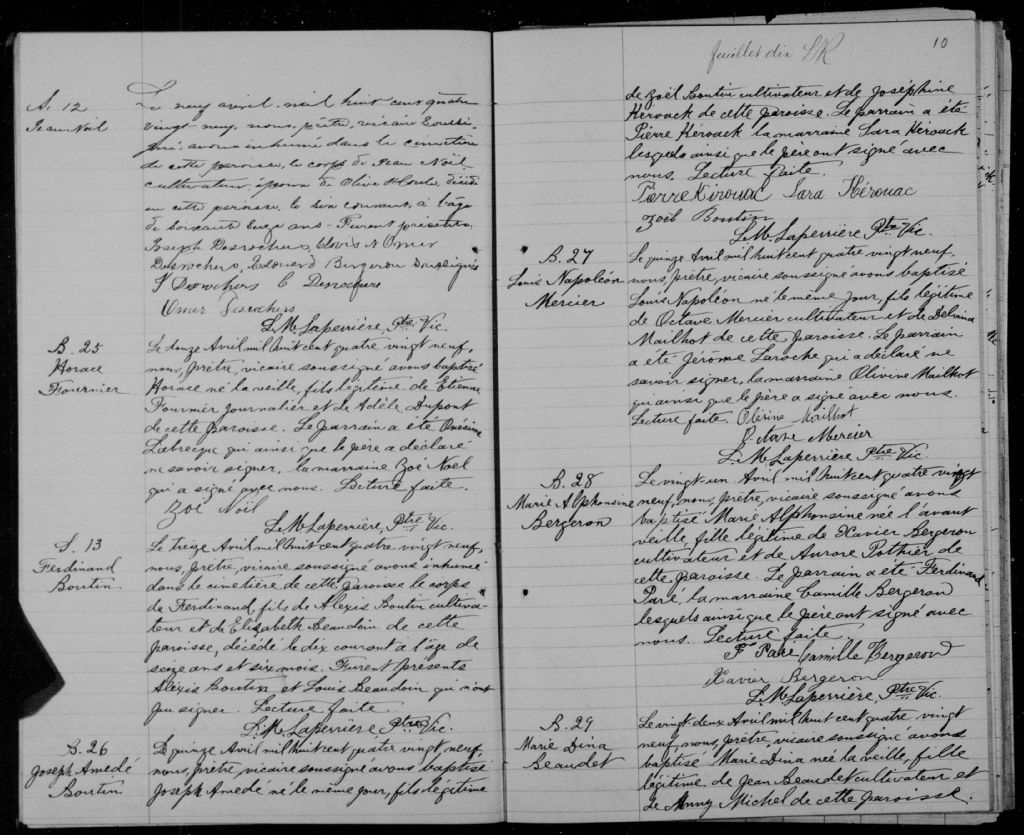 S. 12
Jean Noël
Le neuf avril mil huit cent quatre
vingt neuf, nous, prêtre, vicaire soussi-
gné, avons inhumé dans le cimetière
de cette paroisse, le corps de Jean Noël
cultivateur, époux de Olive Houle, décédé
en cette paroisse, le six courant, à l'âge
de soixante ans - Furent présents,
Joseph Desrochers, Clovis & Omer
Desrochers, Edouard Bergeron soussignés
J Desrochers C Desrochers
Omer Desrochers
L.M. Laperrière, Ptre Vic.
B. 25
Horace
Fournier
Le douze Avril mil huit cent quatre vingt neuf,
nous, prêtre, vicaire soussigné avons baptisé
Horace né la veille, fils légitime de Etienne
Fournier journalier et de Adèle Dupont
de cette paroisse. Le parrain a été Onésime
Labrecque qui ainsi que le père a déclaré
ne savoir signer, la marraine Zoé Noel
qui a signé avec nous. Lecture faite.
Zoé Noël
L.M. Laperrière, Ptre Vic.
S. 13
Ferdinand
Boutin
Le treize Avril mil huit cent quatre vingt neuf,
nous, prêtre, vicaire soussigné avons inhumé
dans le cimetière de cette paroisse le corps
de Ferdinand, fils de Alexis Boutin cultiva-
teur et de Elizabeth Beaudoin de cette
paroisse, décédé le dix courant à l'âge de
seize ans et six mois. Furent présents
Alexis Boutin et Louis Beaudoin qui n'ont
pu signer. Lecture faite
L.M. Laperrière Ptre Vic.
B. 26
Joseph Amedé
Boutin
Le quinze Avril mil huit cent quatre vingt neuf,
nous, prêtre, vicaire soussigné avons baptisé
Joseph Amede né le même jour, fils légitime
feuillet dix LR
10
de Zoël Boutin cultivateur et de Joséphine
Kerouack de cette paroisse. Le parrain a été
Pierre Kérouack la marraine Sara Kerouack
lesquels ainsi que le père ont signé avec
nous. Lecture faite.
Pierre Kirouac Sara Kérouac
Zoël Boutin
L.M. Laperrière Ptre Vic.
B. 27
Louis Napoléon
Mercier
Le quinze Avril mil huit cent quatre vingt neuf,
nous, prêtre, vicaire soussigné avons baptisé
Louis Napoléon né le même jour, fils légitime
de Octave Mercier cultivateur et de Delvina
Mailhot de cette paroisse. Le parrain
a été Jérôme Laroche qui a déclaré ne
savoir signer, la marraine Olivine Mailhot
qui ainsi que le père a signé avec nous.
Lecture faite. Olevine Mailhot
Octave Mercier
L.M. Laperrière Ptre Vic.
B. 28
Marie Alphonsine
Bergeron
Le vingt-un Avril mil huit cent quatre vingt
neuf, nous, prêtre, vicaire soussigné avons
baptisé Marie Alphonsine née l'avant
veille, fille légitime de Xavier Bergeron
cultivateur et de Aurore Pothier de
cette paroisse. Le parrain a été Ferdinand
Paré, la marraine Camille Bergeron
lesquels ainsi que le père ont signé avec
nous. Lecture faite
F Paré Camille Bergeron
Xavier Bergeron
L.M. Laperrière, Ptre Vic.
B. 29
Marie Dina
Beaudet
Le vingt deux Avril mil huit cent quatre vingt
neuf, nous, prêtre, vicaire soussigné avons
baptisé Marie Dina née la veille, fille
légitime de Jean Beaudet cultivateur et
de Anny Michel de cette paroisse.